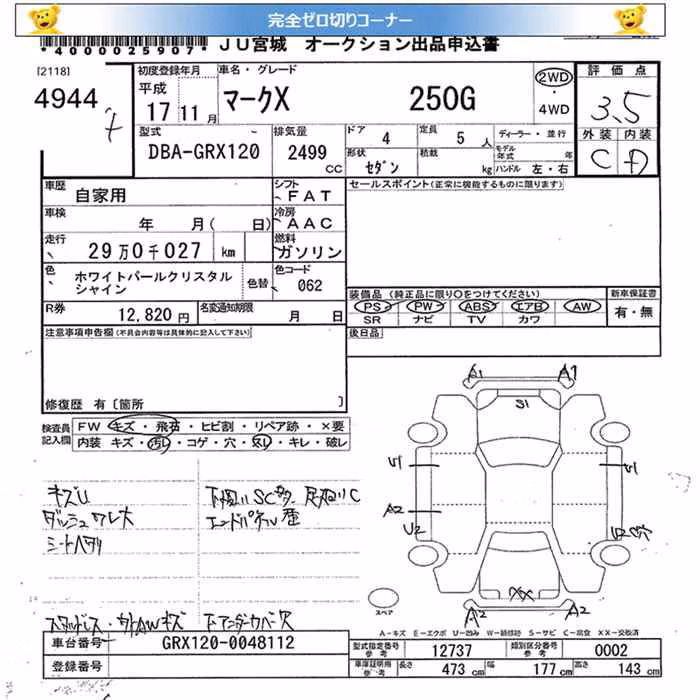 完全ゼロ切りコーナー
*4000025907*
JU宮城 オークション出品申込書
[2118]
4944
初度登録年月
平成
17 11月
車名・グレード
マークX 250G
2WD
4WD
評価点
3.5
外装 内装
C D
型式
DBA-GRX120
排気量
2499
CC
ドア 4
定員 5 人
形状 セダン
積載 kg
ディーラー・並行
モデル年式 年
ハンドル 左・右
車歴 自家用
シフト FAT
セールスポイント(正常に機能するものに限ります)
車検 年 月( 日)
冷房 AAC
走行 29万0千027 km
燃料 ガソリン
色 ホワイトパールクリスタル
シャイン
色替
色コード 062
装備品 (純正品に限り○をつけてください)
新車保証書
R券 12,820円
名変通知期限 月 日
PS PW ABS エアB AW
SR ナビ TV カワ
有・無
注意事項申告欄(不具合内容等は具体的に記入して下さい)
後日品
修復歴 有〔箇所 〕
検査員記入欄
FW キズ・飛石・ヒビ割・リペア跡・×要
内装 キズ・汚レ・コゲ・穴・スレ・キレ・破レ
A1 A1
S1
U1 U1
A2
U2 U2
XX
A2 A2
スペア
キズU
ダッシュワレ大
シートヘタリ
エンドパネル歪
A-キズ E-エクボ U-凹み W-補修跡 S-サビ C-腐食 XX-交換済
車台番号 GRX120-0048112
登録番号
型式指定番号参考 12737
類別区分番号参考 0002
車庫証明用参考 長さ 473 cm 幅 177 cm 高さ 143 cm